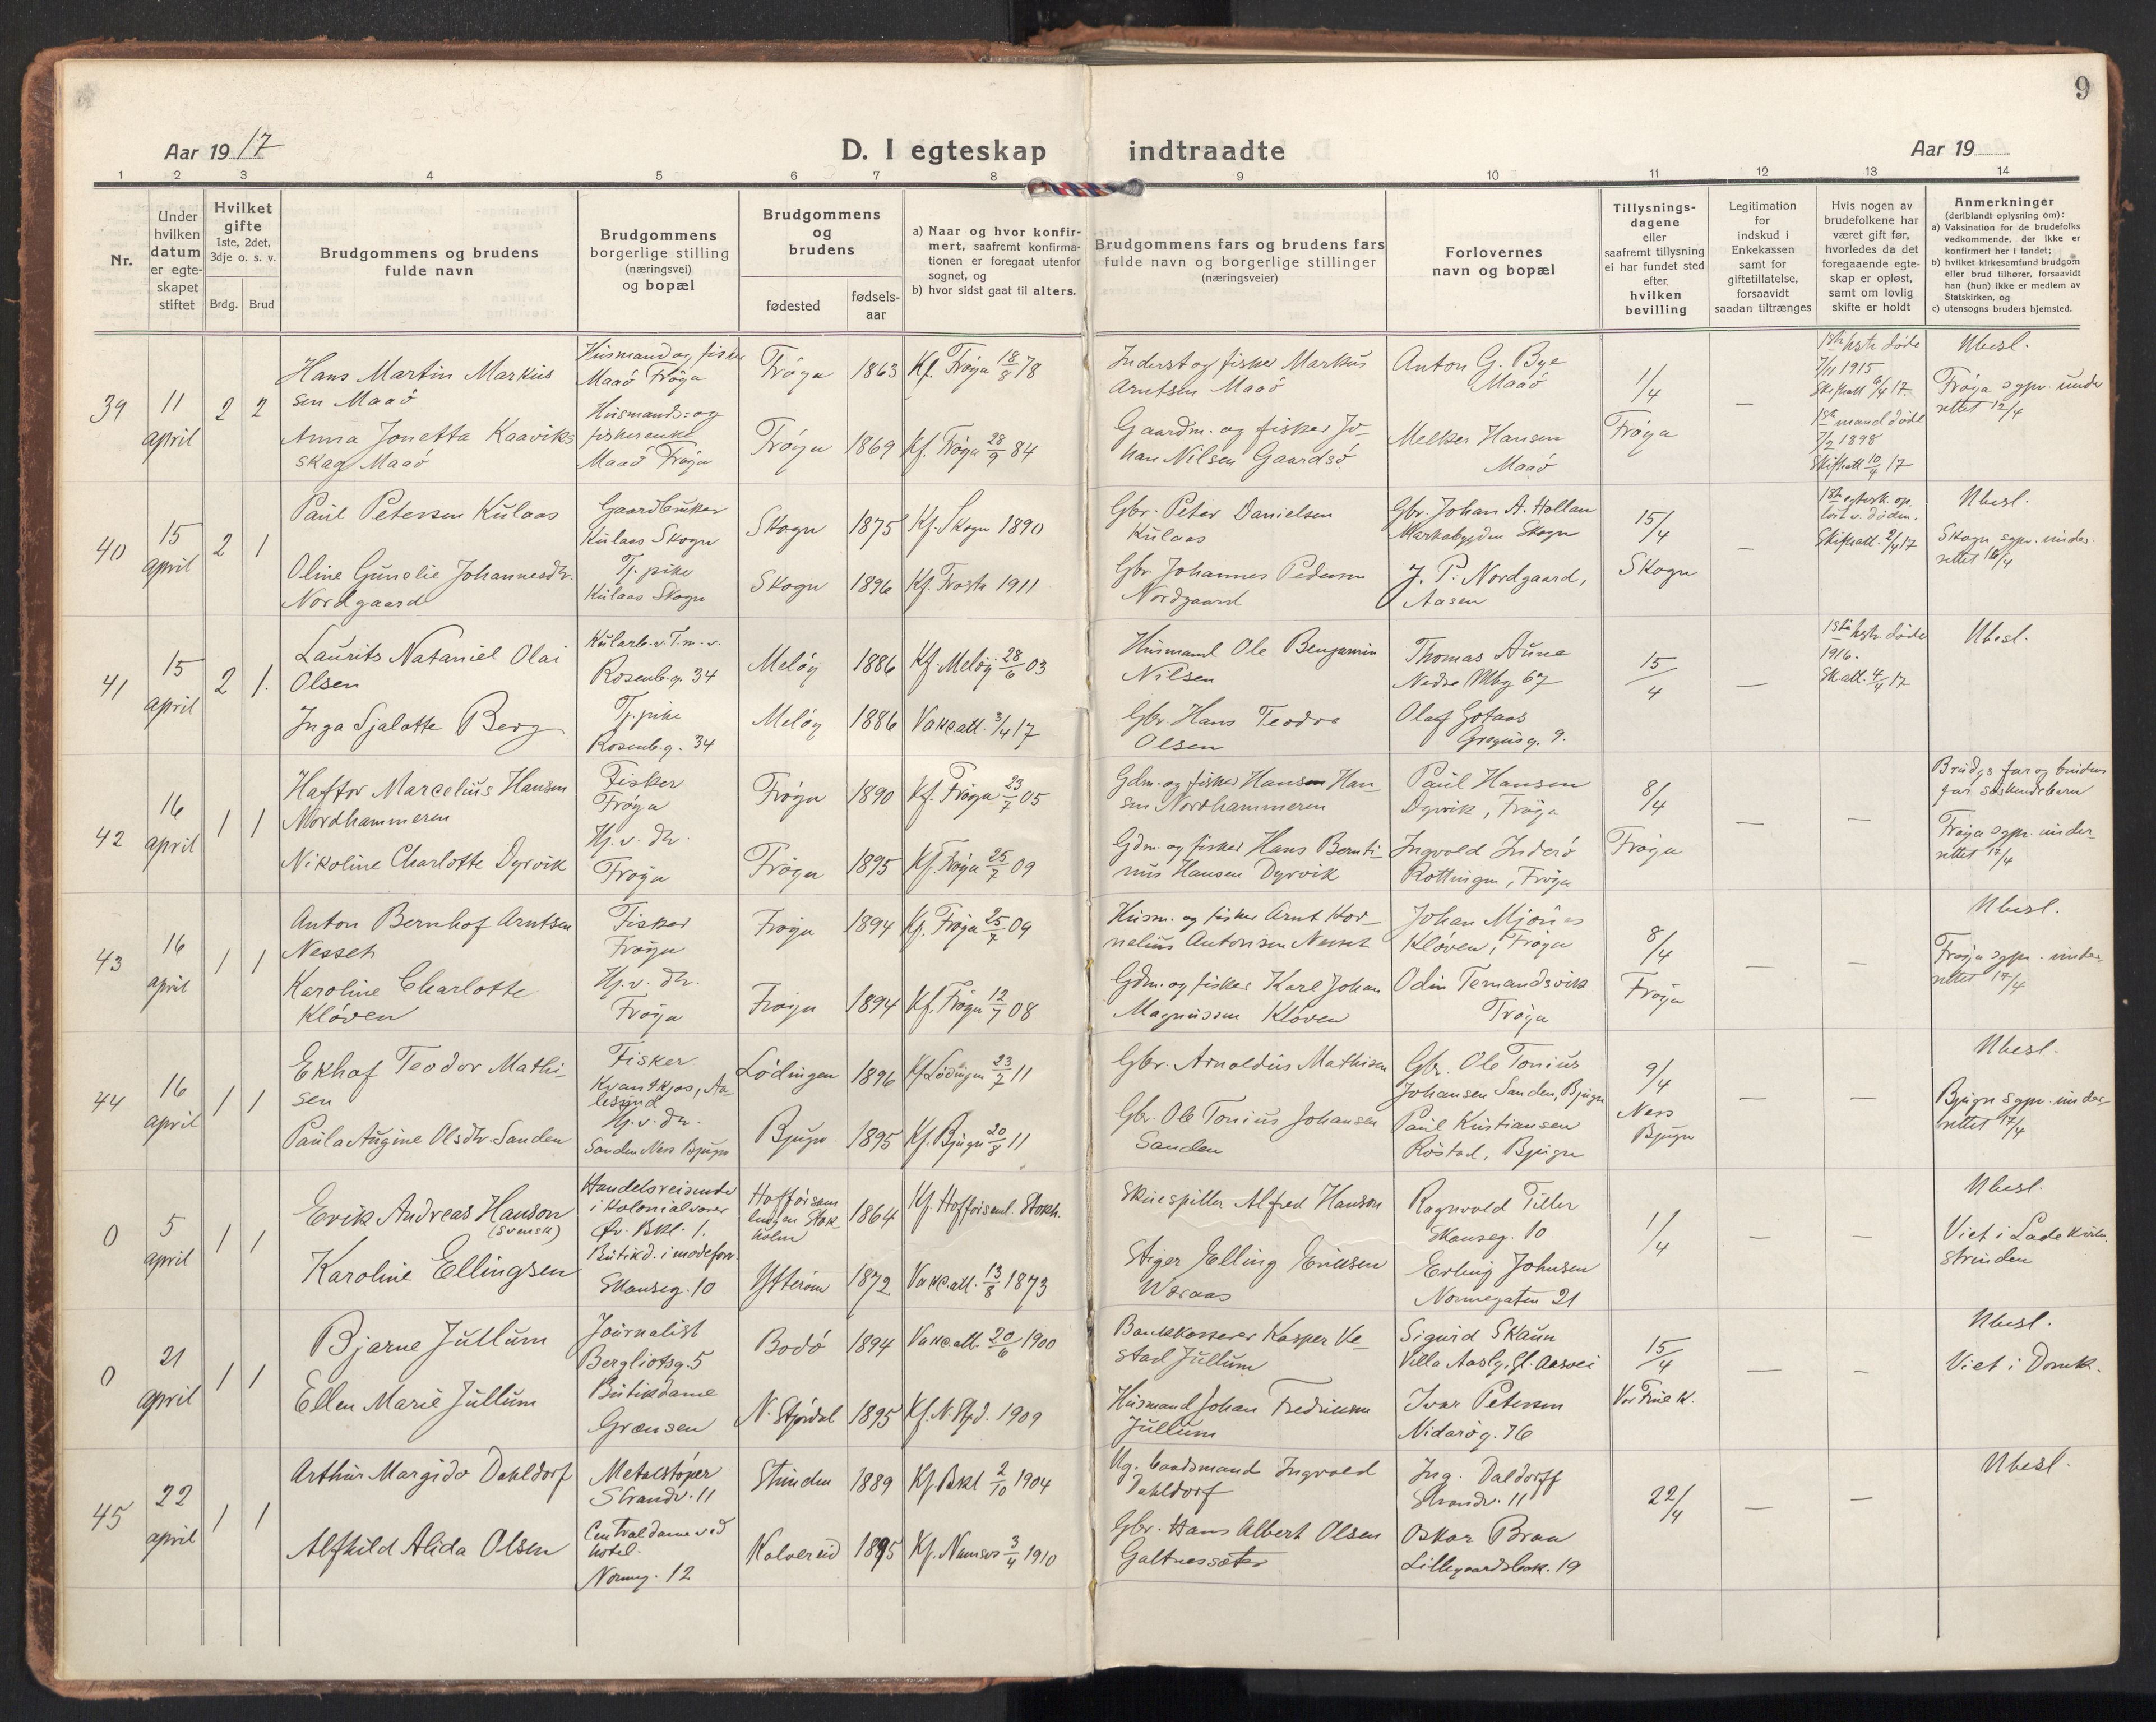 9
Aar 1917
D. I egteskap indtraadte
Aar 19
1 2 3 4 5 6 7 8 9 10 11 12 13 14
Nr.
Under
hvilken
datum
er egte-
skapet
stiftet
Hvilket
gifte
1ste, 2det,
3dje o. s. v.
Brdg. Brud
Brudgommens og brudens
fulde navn
Brudgommens
borgerlige stilling
(næringsvei)
og bopæl
Brudgommens
og
brudens
fødested
fødsels-
aar
a) Naar og hvor konfir-
mert, saafremt konfirma-
tionen er foregaat utenfor
sognet, og
b) hvor sidst gaat til alters.
Brudgommens fars og brudens fars
fulde navn og borgerlige stillinger
(næringsveier)
Forlovernes
navn og bopæl
Tillysnings-
dagene
eller
saafremt tillysning
ei har fundet sted
efter,
hvilken
bevilling
Legitimation
for
indskud i
Enkekassen
samt for
giftetillatelse,
forsaavidt
saadan tiltrænges
Hvis nogen av
brudefolkene har
været gift før,
hvorledes da det
foregaaende egte-
skap er opløst,
samt om lovlig
skifte er holdt
Anmerkninger
(deriblandt oplysning om):
a) Vaksination for de brudefolks
vedkommende, der ikke er
konfirmert her i landet;
b) hvilket kirkesamfund brudgom
eller brud tilhører, forsaavidt
han (hun) ikke er medlem av
Statskirken, og
c) utensogns bruders hjemsted.
39
11
april
2 2
Hans Martin Markus
sen Maaö
Anna Jonetta Kaaviks
skag Maaö
Husmand og fisker
Maaö Fröya
Husmands- og
fiskerenke
Maaö Fröya
Fröya 1863 Kf. Fröya 18/8 78
Fröya 1869 Kf. Fröya 28/9 84
Inderst og fisker Markus
Arntsen Maaö
Gaardm. og fisker Jo-
han Nilsen Gaardsö
Anton G. Bye
Maaö
Melker Hansen
Maaö
1/4
Fröya
—
1ste hstr döde
7/11 1915
Skifteatt 6/4 17.
1ste mand döde
7/2 1898
Skifteatt 10/4 17
Ubesl.
Fröya sgpr. under
rettet 12/4
40
15
april
2 1
Paul Petersen Kulaas
Oline Gunelie Johannesdtr.
Nordgaard
Gaardbruker
Kulaas Skogn
Tj. pike
Kulaas Skogn
Skogn 1875 Kf. Skogn 1890
Skogn 1896 Kf. Frosta 1911
Gbr. Peter Danielsen
Kulaas
Gbr. Johannes Pedersen
Nordgaard
Gbr. Johan A. Hollan
Markabygden Skogn
J. P. Nordgaard,
Aasen
15/4
Skogn
—
1ste egtesk. op
löst v. döden.
Skifteatt. 2/4 17
Ubesl.
Skogn sgpr. under
rettet 16/4
41
15
april
2 1.
Laurits Nataniel Olai
Olsen
Inga Sjalotte Berg
Kularb. v. T.m.v.
Rosenb.g. 34
Tj. pike
Rosenb.g. 34
Melöy 1886 Kf. Melöy 28/6 03
Melöy 1886 Vakc.att. 3/4 17
Husmand Ole Benjamin
Nilsen
Gbr. Hans Teodor
Olsen
Thomas Aune
Nedre Mbg 67
Olaf Gotaas
Gregusg. 9.
15/4
—
1ste hstr döde
1916.
Sk att. 4/4 17
Ubesl.
42
16
april
1 1
Haftor Marcelius Hansen
Nordhammeren
Nikoline Charlotte Dyrvik
Fisker
Fröya
Hj. v. dtr.
Fröya
Fröya 1890 Kf. Fröya 23/7 05
Fröya 1895 Kf. Fröya 25/7 09
Gdm. og fisker Hansen Han-
sen Nordhammeren
Gdm. og fisker Hans Bernti-
nus Hansen Dyrvik
Paul Hansen
Dyrvik, Fröya
Ingvald Inderö
Rottingen, Fröya
8/4
Fröya
— —
Brudgs far og brudens
far söskendebarn
Fröya sgpr. under-
rettet 17/4
43
16
april
1 1
Anton Bernhof Arntsen
Nesset
Karoline Charlotte
Klöven
Fisker
Fröya
Hj. v. dtr.
Fröya
Fröya 1894 Kf. Fröya 25/7 09
Fröya 1894 Kf. Fröya 12/7 08
Husm. og fisker Arnt Kor-
nelius Antonsen Nesset
Gdm. og fisker Karl Johan
Magnussen Klöven
Johan Mjönes
Klöven, Fröya
Odin Ternandsvik
Fröya
8/4
Fröya
— —
Ubesl.
Fröya sgpr. under-
rettet 17/4
44
16
april
1 1
Ekhof Teodor Mathi-
sen
Paula Augine Olsdtr. Sanden
Fisker
Kvantkjos, Aa-
lesund
Hj. v. dtr.
Sanden Ness Bjugn
Lödingen 1896 Kf Lödingen 23/7 11
Bjugn 1895 Kf. Bjugn 20/8 11
Gbr. Arnoldus Mathisen
Gbr. Ole Tonius Johansen
Sanden
Gbr. Ole Tonius
Johansen Sanden, Bjugn
Paul Kristiansen
Röstad, Bjugn
9/4
Ness
Bjugn
— —
Ubesl.
Bjugn sgpr. under
rettet 17/4
0
5
april
1 1
Erik Andreas Hanson
(svensk)
Karoline Ellingsen
Handelsreisende
i Kolonialvarer
Öv. Bkl. 1.
Butikd. i modeforr.
Skanseg. 10
Hofförsam
lingen Stok-
holm
1864
Kf. Hofförsaml. Stokh.
Ytterøen 1872 Vakc.att. 13/8 1873
Skuespiller Alfred Hanson
Stiger Elling Eriksen
Weraas
Ragnvald Tiller
Skanseg. 10
Erling Johnsen
Nonnegaten 21
1/4
— —
Ubesl.
Viet i Lade kirke.
Strinden
0
21
april
1 1
Bjarne Jullum
Ellen Marie Jullum
Journalist
Bergliotsg. 5
Butikdame
Grænsen
Bodö 1894 Vakc.att. 20/6 1900
N. Stjördal 1895 Kf. N. Stjd. 1909
Bankkasserer Kasper Ve-
stad Jullum
Husmand Johan Fredriksen
Jullum
Sigurd Skaun
Villa Aasly, Gl. Aasvei
Ivar Petersen
Nidarög. 76
15/4
Vor Frue K.
— —
Ubesl.
Viet i Domk.
45
22
april
1 1
Arthur Margido Dahldorf
Alfhild Alida Olsen
Metalstöper
Strandv. 11
Centraldame ved
hotel.
Nonneg. 12
Strinden 1889 Kf. Bakl 2/10 1904
Kolvereid 1895 Kf. Namsos 3/4 1910
Ug. baadsmand Ingvald
Dahldorf
Gbr. Hans Albert Olsen
Galtnessæter
Ing. Daldorff
Strandv. 11
Oskar Braa
Lillegaardsbak. 19
22/4
— —
Ubesl.